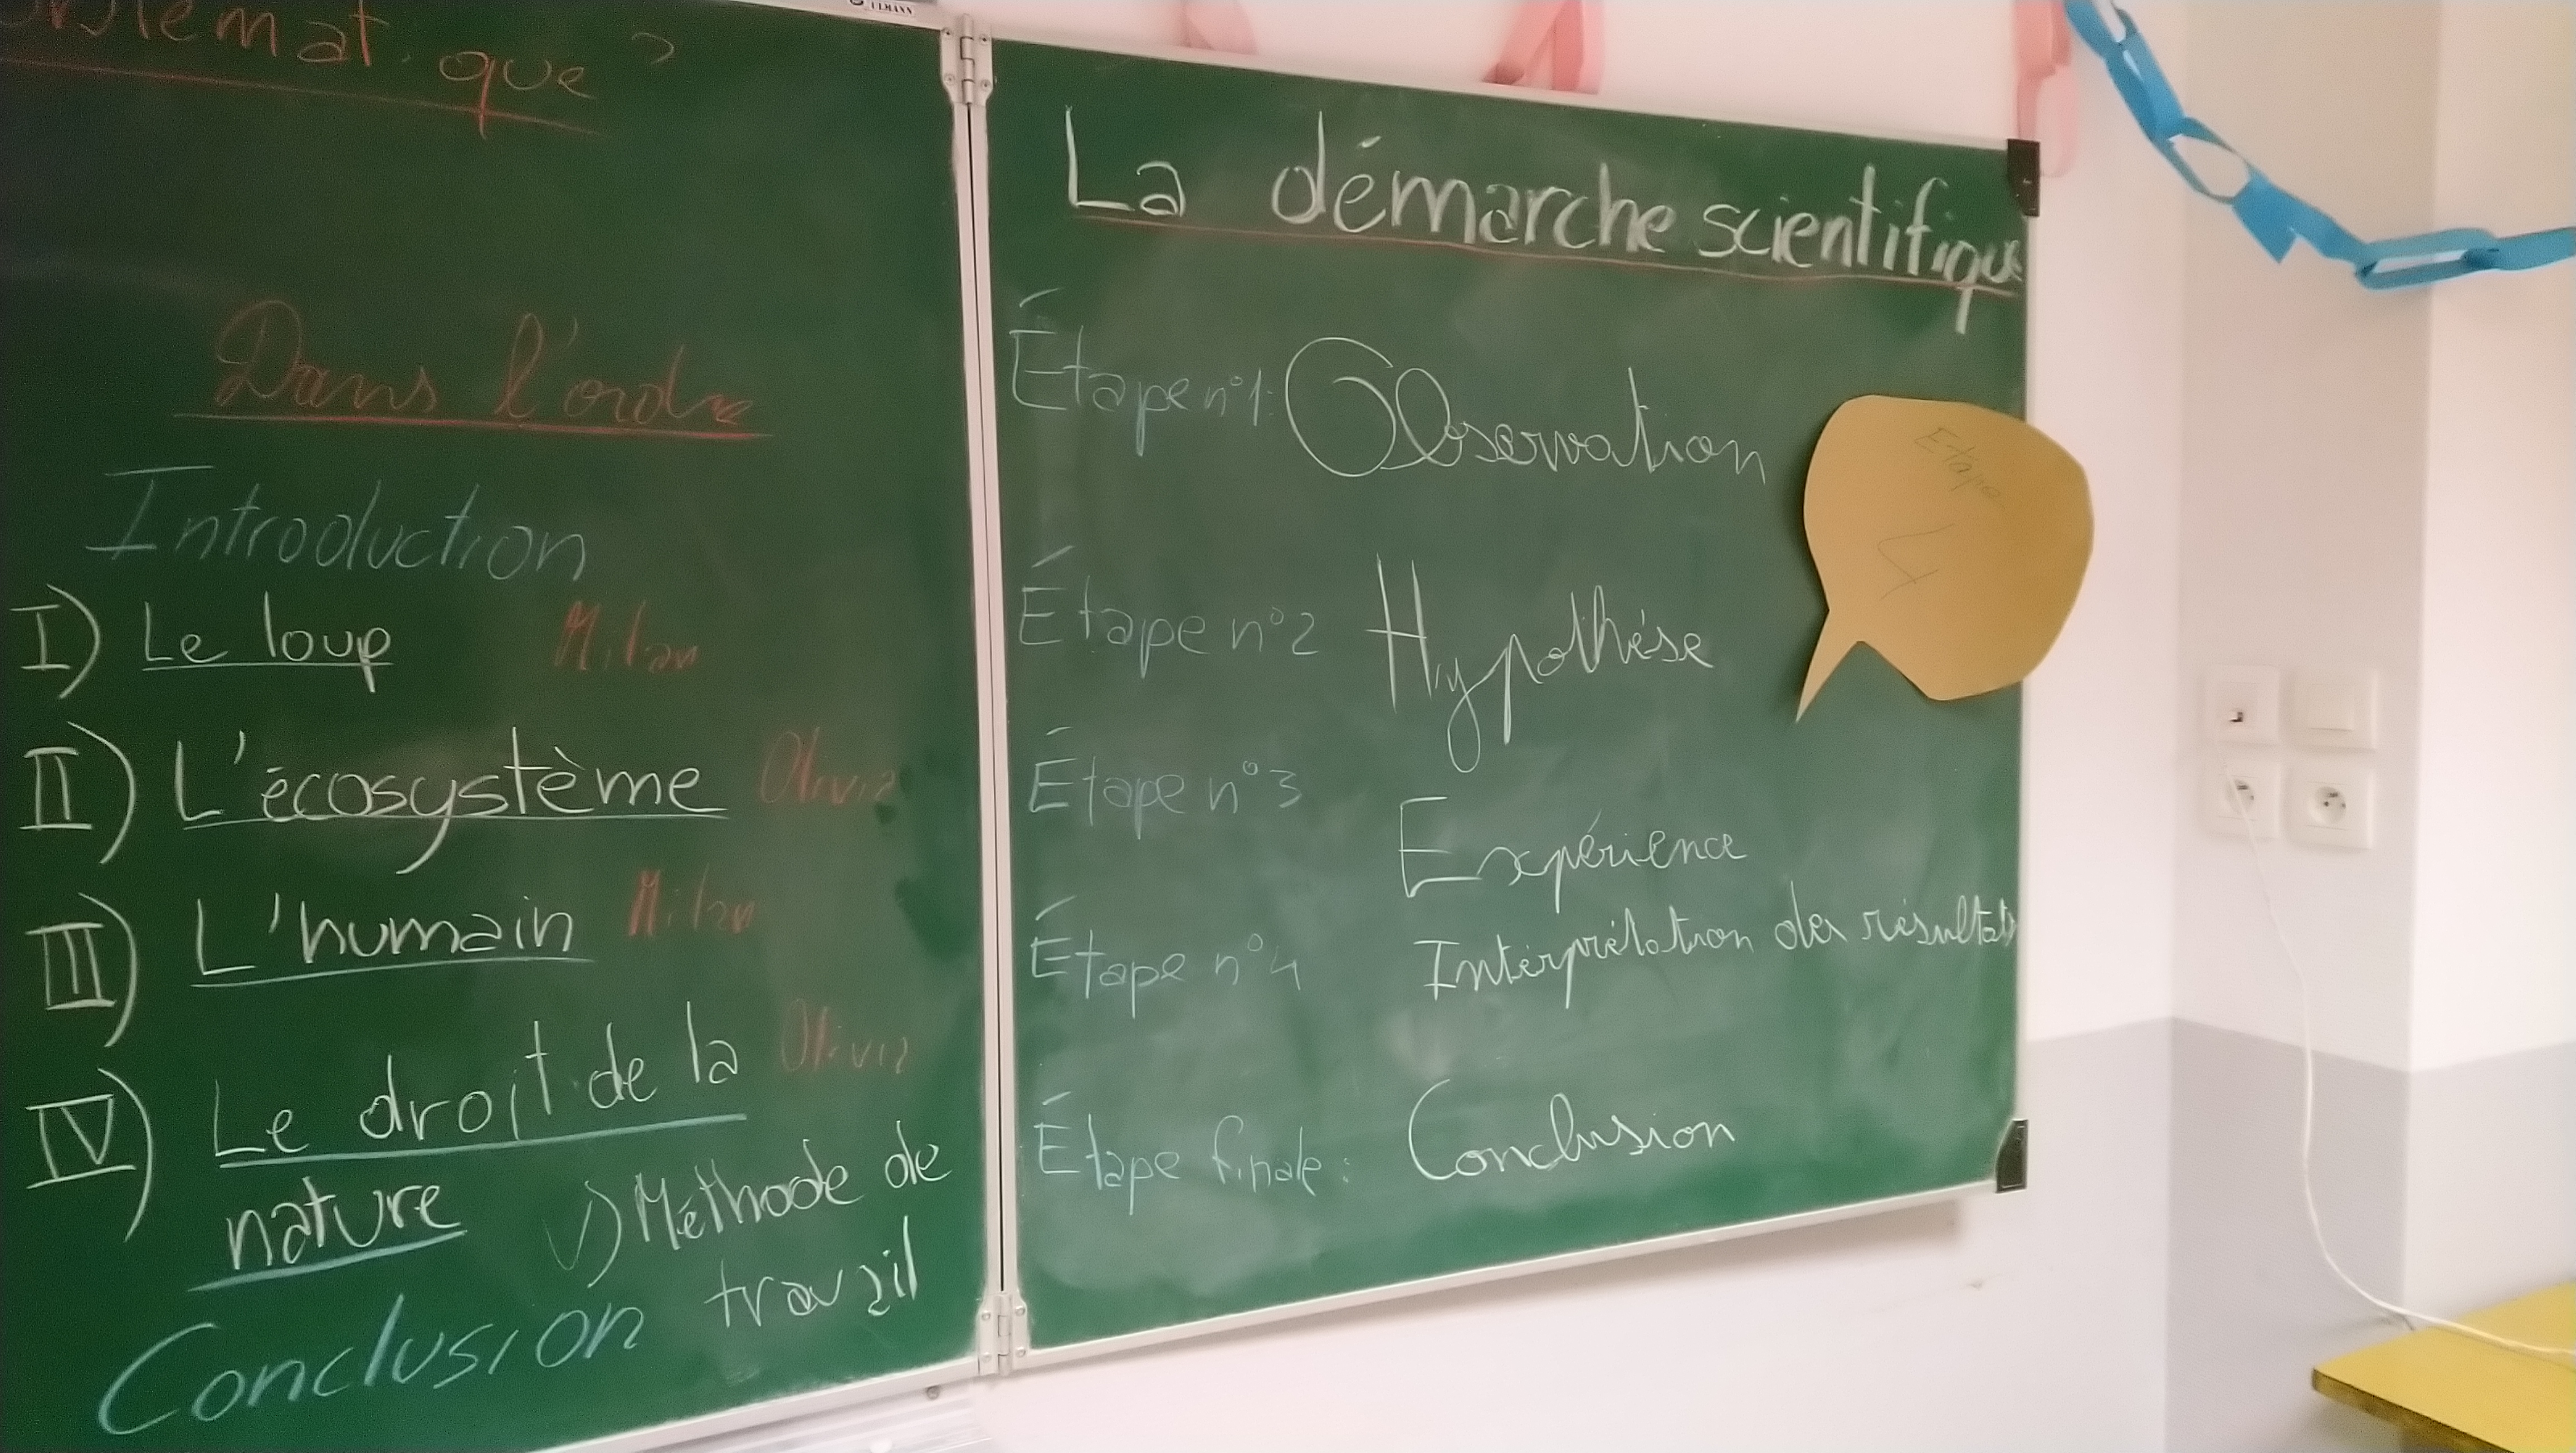 ULMANN
que ?
Dans l'ordre
Introduction
I) Le loup Milan
II) L'écosystème Olivia
III) L'humain Milan
IV) Le droit de la Olivia
nature
V) Méthode de
travail
Conclusion
La démarche scientifique
Étape n°1: Observation
Étape n°2 Hypothèse
Étape n°3 Expérience
Étape n°4 Interprétation des résultats
Étape finale: Conclusion
Etape